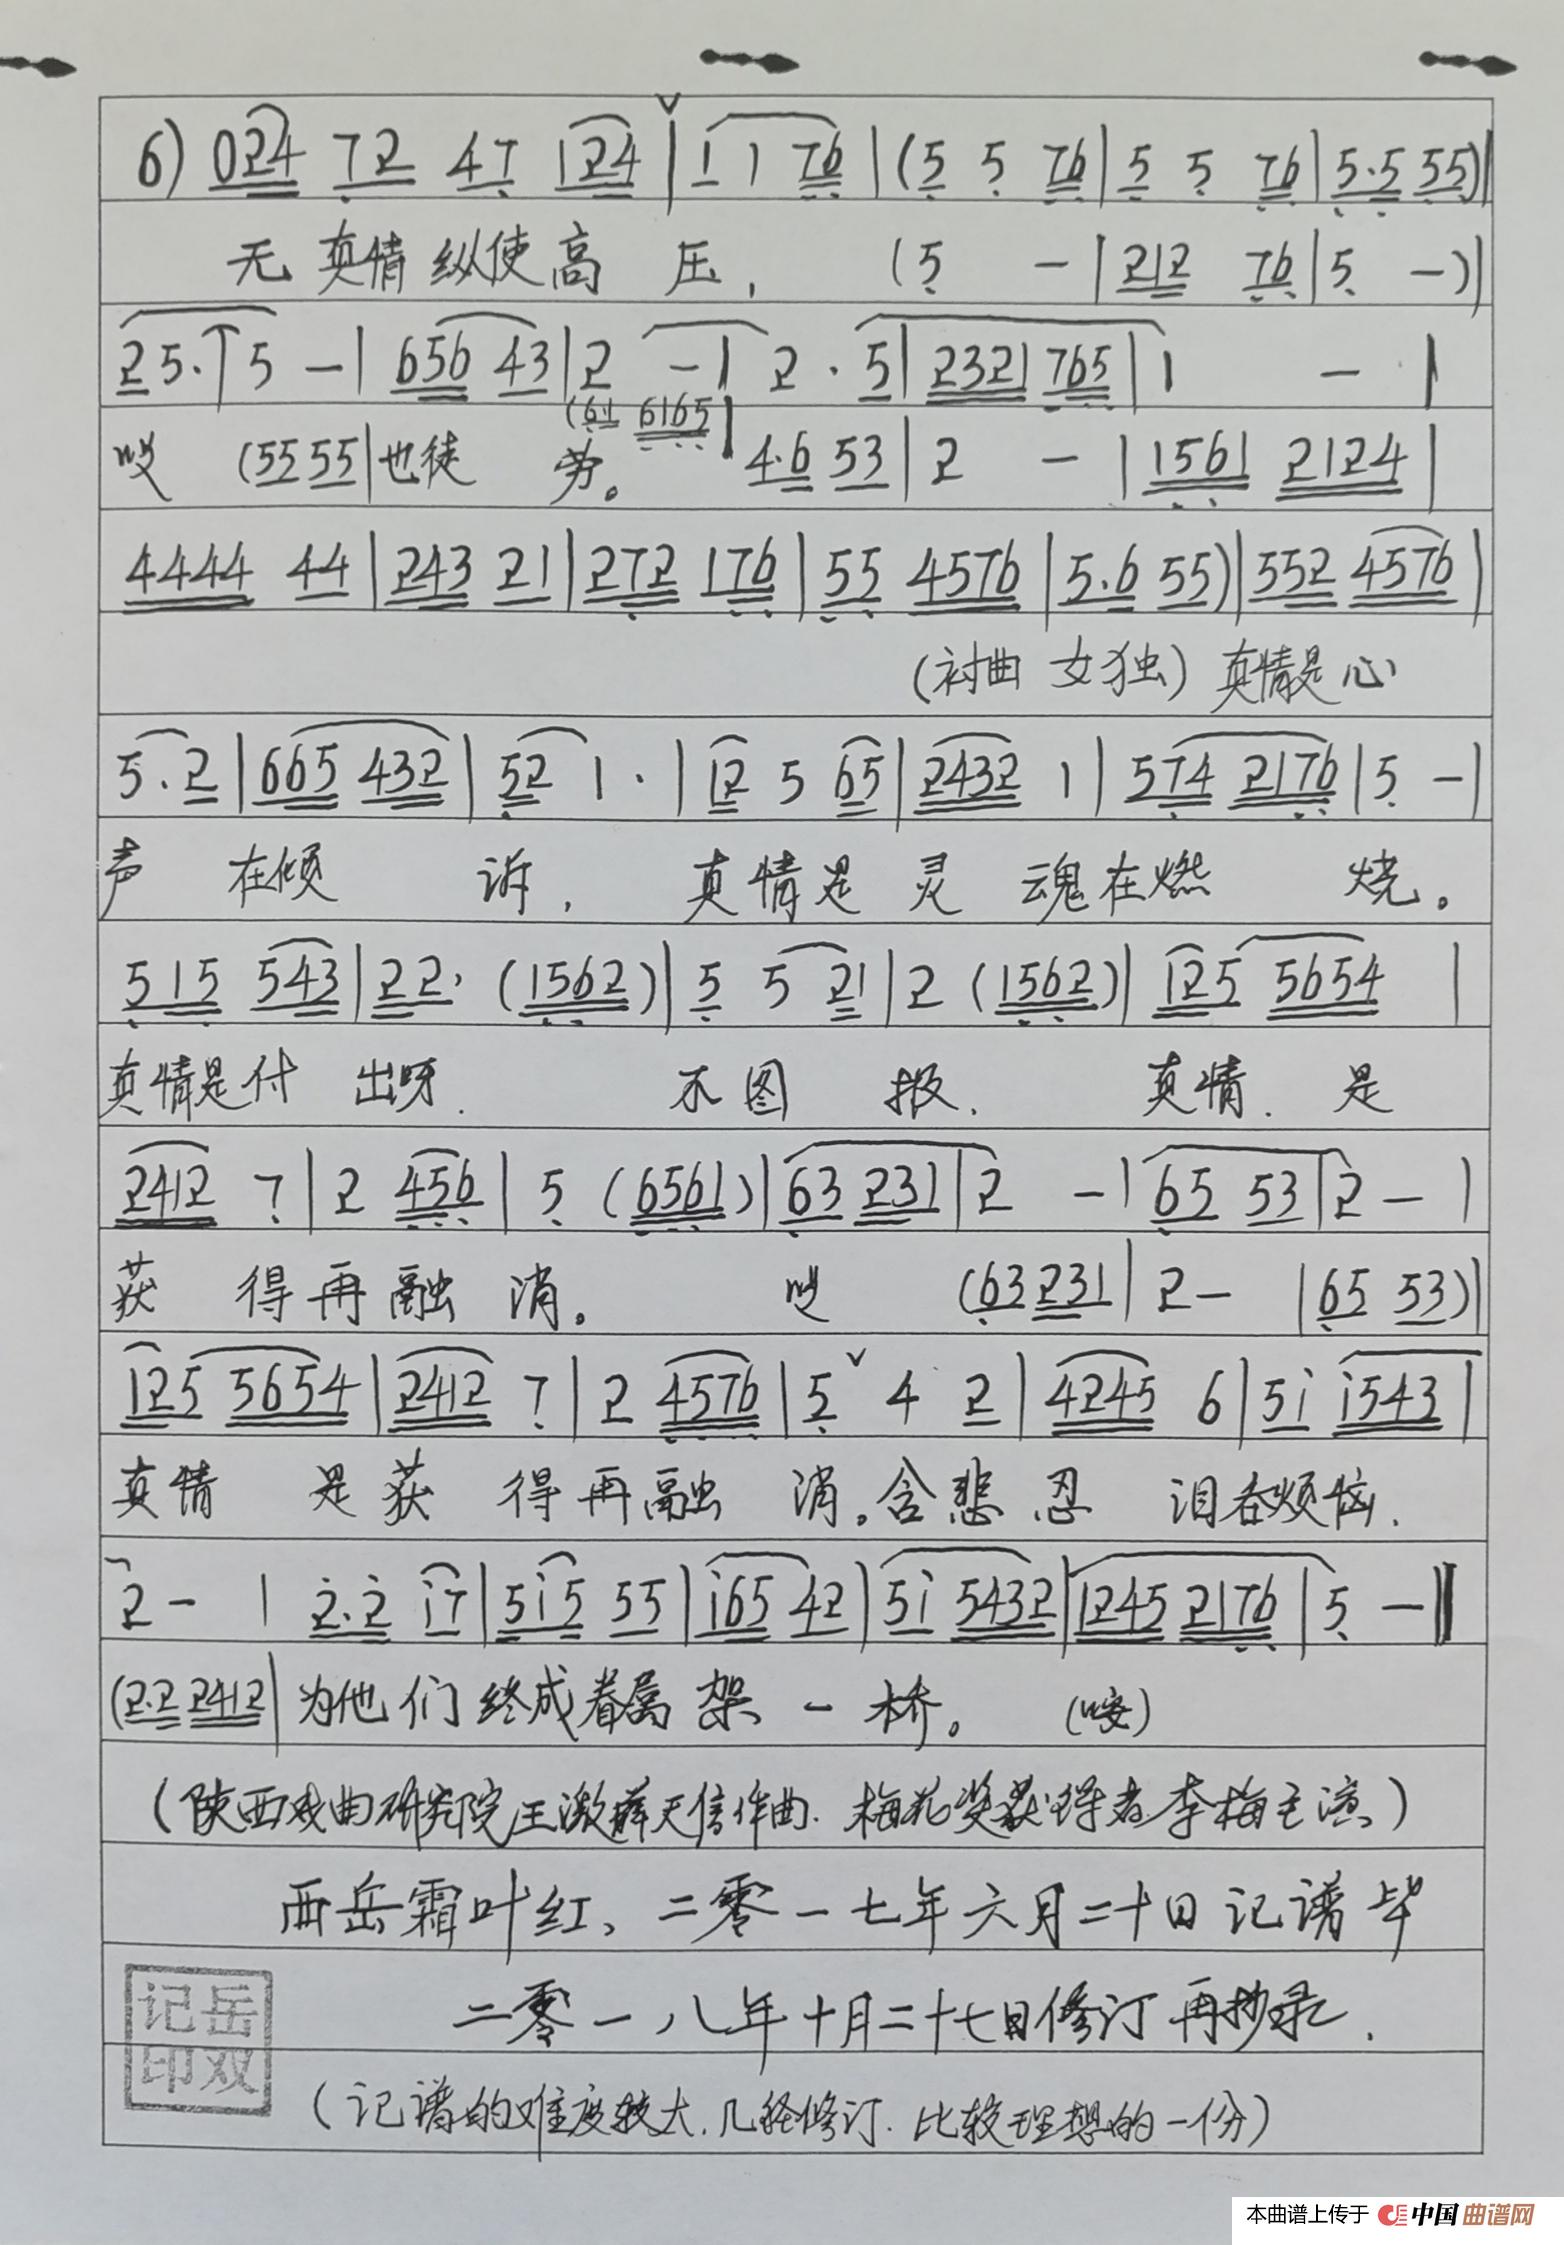 6) 024 72 47 124 | 1 1 76 | (5 5 76 | 5 5 76 | 5.5 55) |
无真情纵使高压, (5 - | 212 76 | 5 -) |
25. | 5 - | 656 43 | 2 - | 2 . 5 | 2321 765 | 1 - |
(61 6165 |
(55 55 | 也徒劳。 4.6 53 | 2 - | 1561 2124 |
4444 44 | 243 21 | 272 176 | 55 4576 | 5.6 55) | 552 4576 |
(衬曲 女独) 真情是心
5.2 | 665 432 | 52 1 . | 12 5 65 | 2432 1 | 574 2176 | 5 - |
声在倾诉, 真情是灵魂在燃烧。
515 543 | 22. (1562) | 5 5 21 | 2 (1562) | 125 5654 |
真情是付出呀. 不图报. 真情. 是
2412 7 | 2 456 | 5 (6561) | 63 231 | 2 - | 65 53 | 2 - |
获得再融消。 (63 231 | 2 - | 65 53) |
125 5654 | 2412 7 | 2 4576 | 5 ˅ 4 2 | 4245 6 | 5i i543 |
真情是获得再融消。含悲忍泪吞烦恼.
2 - | 2.2 i7 | 5i5 55 | i65 42 | 5i 5432 | 1245 2176 | 5 - ‖
(2.2 2412 | 为他们终成眷属架一桥。 (咹)
(陕西戏曲研究院王激薛天信作曲. 梅花奖获得者李梅主演)
西岳霜叶红、二零一七年六月二十日记谱毕
二零一八年十月二十七日修订再抄录.
岳双记印
(记谱的难度较大. 几经修订. 比较理想的一份)
本曲谱上传于 中国曲谱网